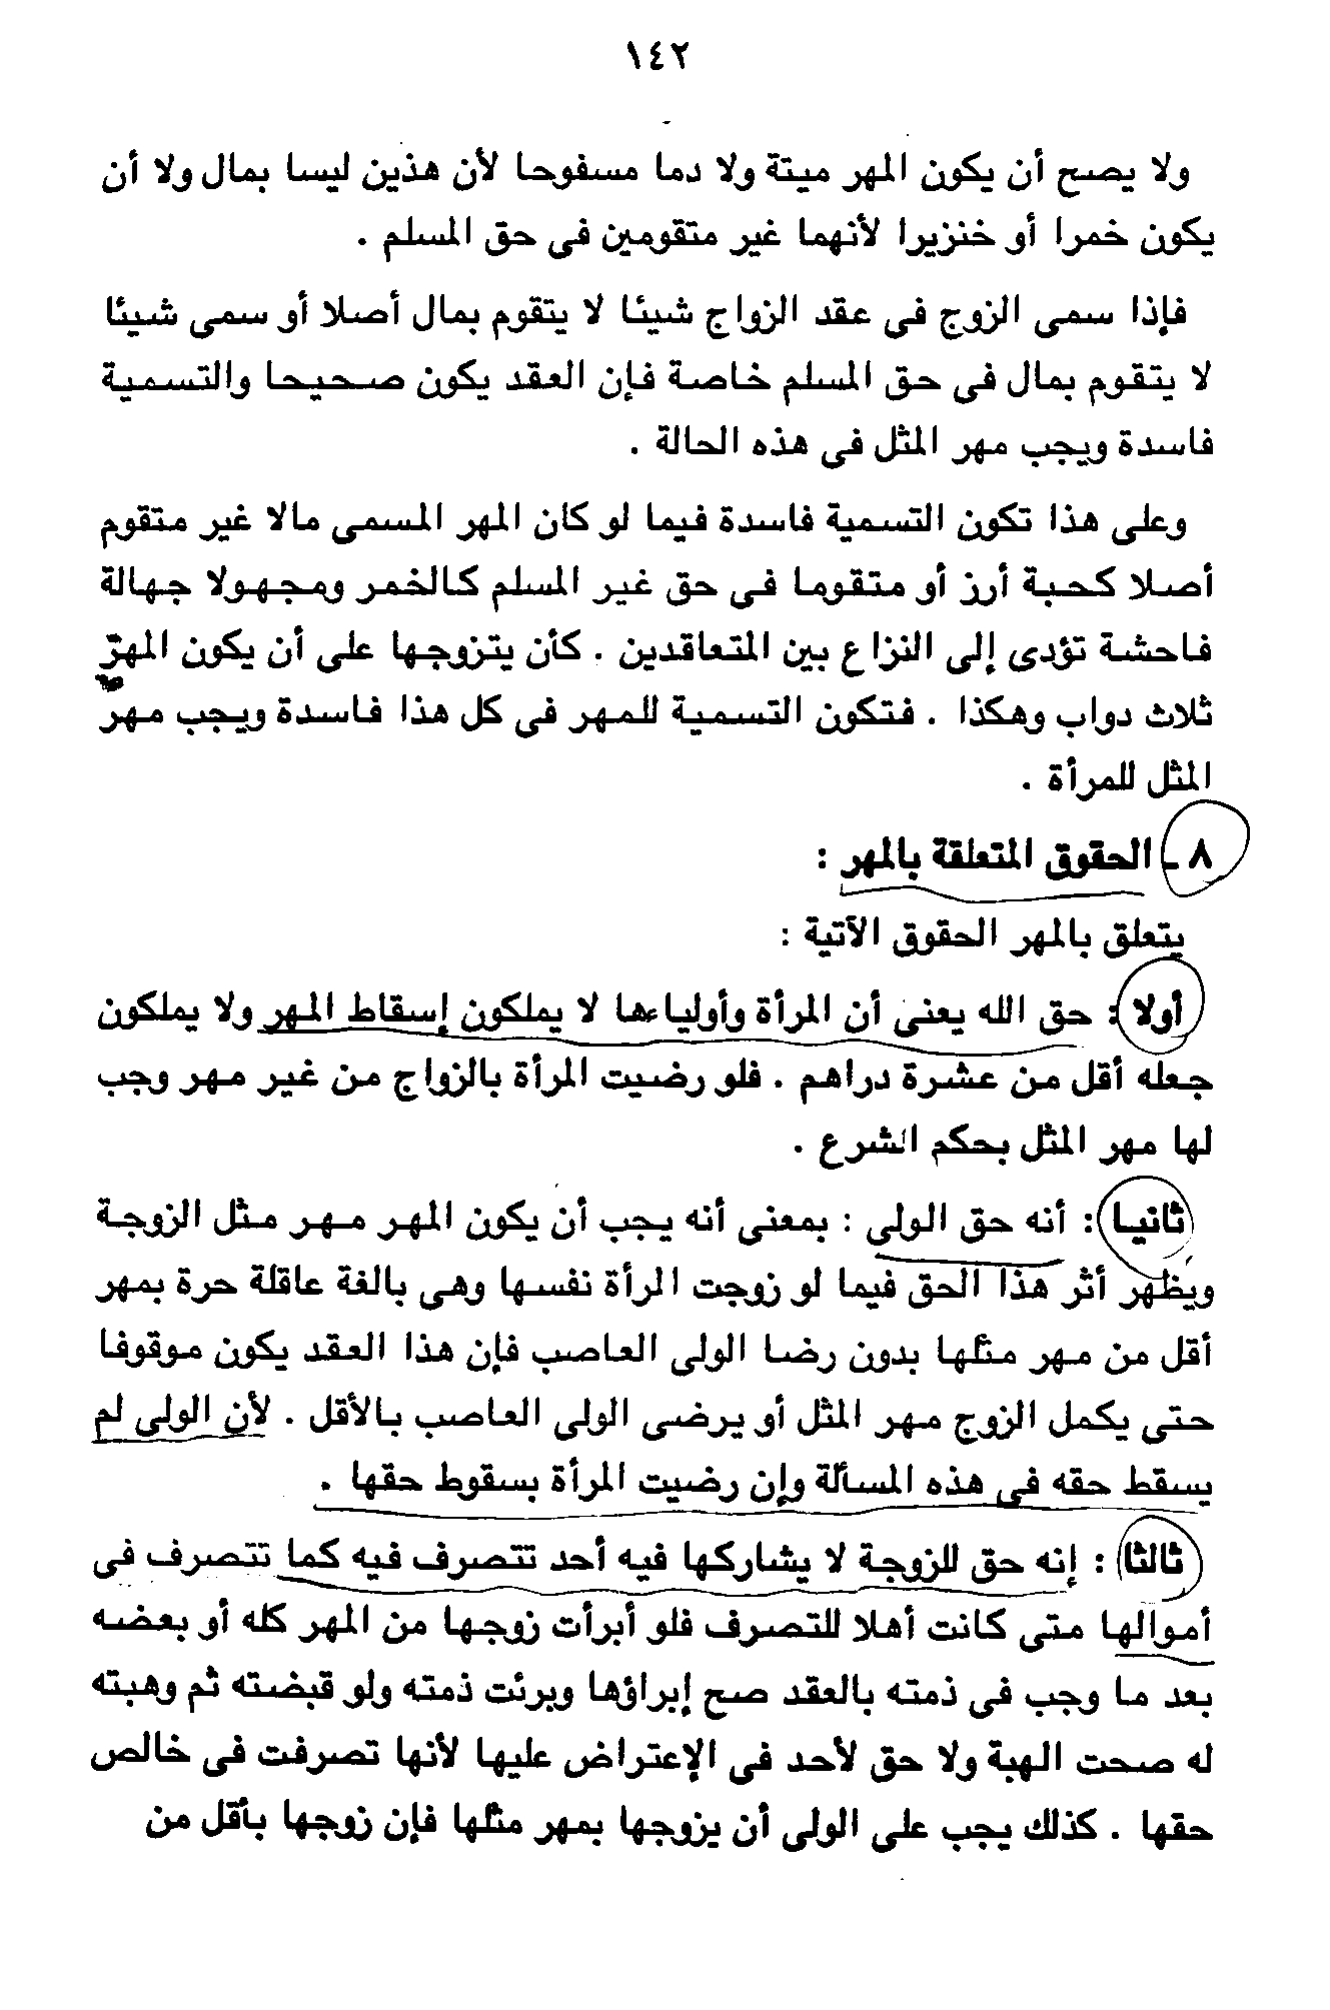 ١٤٢
ولا يصح أن يكون المهر ميتة ولا دما مسفوحا لأن هذين ليسا بمال ولا أن
يكون خمرا أو خنزيرا لأنهما غير متقومين فى حق المسلم .
فإذا سمى الزوج فى عقد الزواج شيئا لا يتقوم بمال أصلا أو سمى شيئا
لا يتقوم بمال فى حق المسلم خاصة فإن العقد يكون صحيحا والتسمية
فاسدة ويجب مهر المثل فى هذه الحالة .
وعلى هذا تكون التسمية فاسدة فيما لو كان المهر المسمى مالا غير متقوم
أصلا كحبة أرز أو متقوما فى حق غير المسلم كالخمر ومجهولا جهالة
فاحشة تؤدى إلى النزاع بين المتعاقدين . كأن يتزوجها على أن يكون المهر
ثلاث دواب وهكذا . فتكون التسمية للمهر فى كل هذا فاسدة ويجب مهر
المثل للمرأة .
٨ ـ الحقوق المتعلقة بالمهر :
يتعلق بالمهر الحقوق الآتية :
أولا : حق الله يعنى أن المرأة وأولياءها لا يملكون إسقاط المهر ولا يملكون
جعله أقل من عشرة دراهم . فلو رضيت المرأة بالزواج من غير مهر وجب
لها مهر المثل بحكم الشرع .
ثانيا : أنه حق الولى : بمعنى أنه يجب أن يكون المهر مهر مثل الزوجة
ويظهر أثر هذا الحق فيما لو زوجت المرأة نفسها وهى بالغة عاقلة حرة بمهر
أقل من مهر مثلها بدون رضا الولى العاصب فإن هذا العقد يكون موقوفا
حتى يكمل الزوج مهر المثل أو يرضى الولى العاصب بالأقل . لأن الولى لم
يسقط حقه فى هذه المسألة وإن رضيت المرأة بسقوط حقها .
ثالثا : إنه حق للزوجة لا يشاركها فيه أحد تتصرف فيه كما تتصرف فى
أموالها متى كانت أهلا للتصرف فلو أبرأت زوجها من المهر كله أو بعضه
بعد ما وجب فى ذمته بالعقد صح إبراؤها وبرئت ذمته ولو قبضته ثم وهبته
له صحت الهبة ولا حق لأحد فى الإعتراض عليها لأنها تصرفت فى خالص
حقها . كذلك يجب على الولى أن يزوجها بمهر مثلها فإن زوجها بأقل من